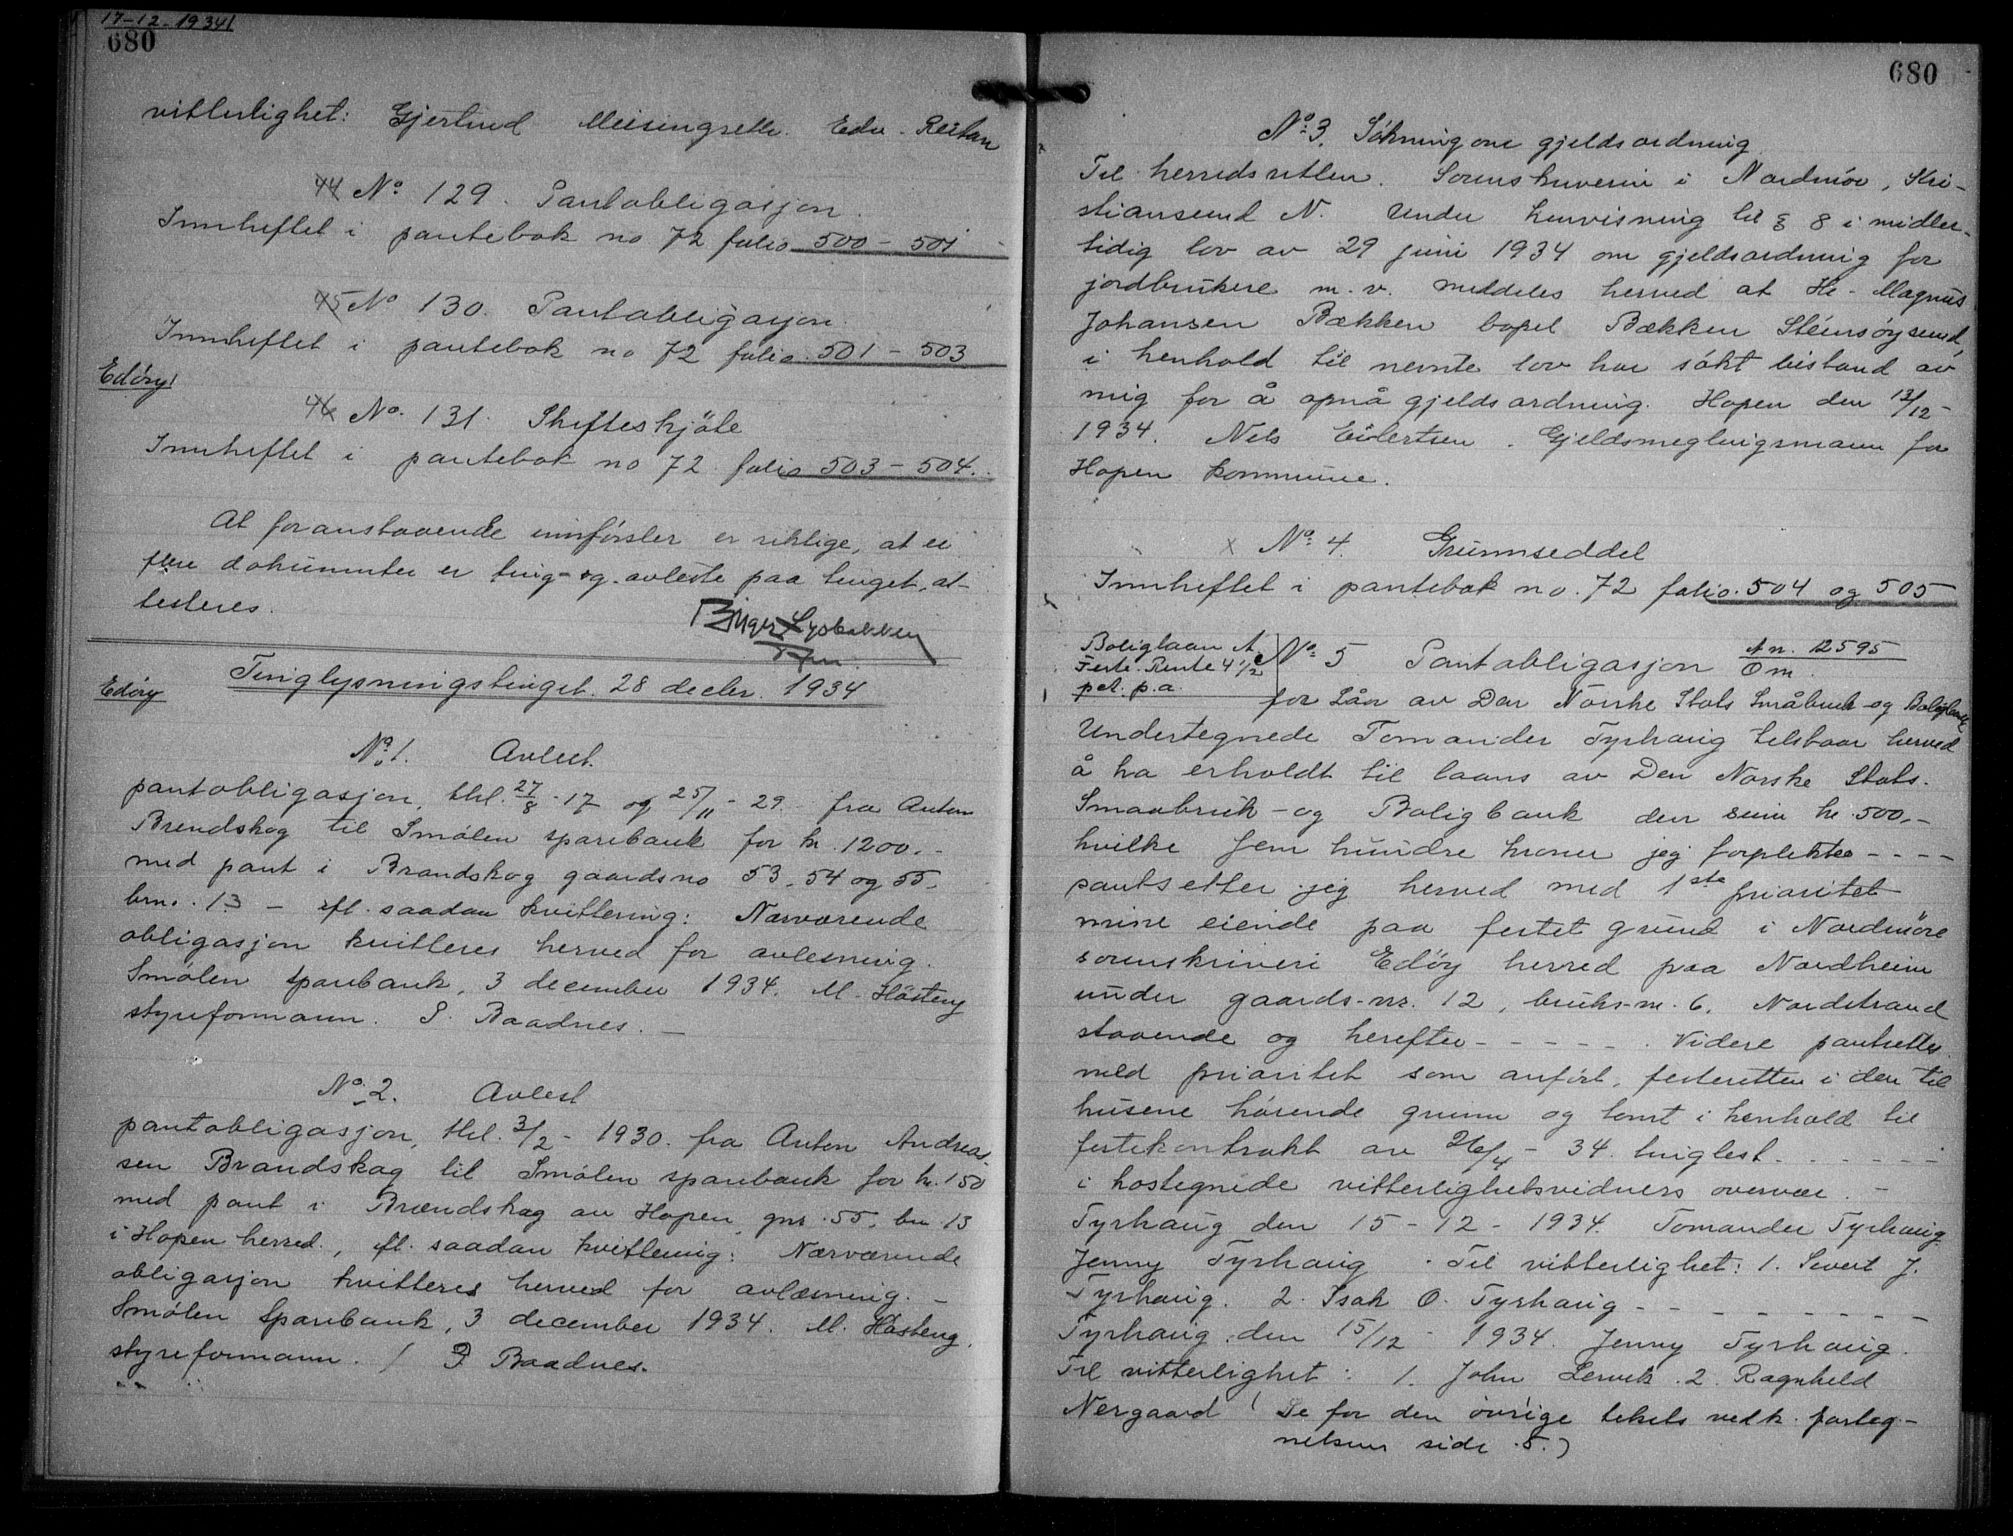 17-12-1934
680
vitterlighet: Gjertrud Meisingseth. Edv. Reitan
44 No 129. Pantobligasjon.
Innheftet i pantebok no 72 folio 500 - 501
45 No 130. Pantobligasjon.
Innheftet i pantebok no 72 folio 501 - 503
Edöy
46 No. 131. Skifteskjöte
Innheftet i pantebok no 72 folio 503 - 504.
At foranstaaende innförsler er riktige, at ei
flere dokumenter er ting- og avleste paa tinget, at-
testeres.
Birger Lysbakken
Tinglysningstinget. 28 decbr. 1934
Edöy
No 1. Avlest.
pantobligasjon, thl. 27/8 - 17 og 25/11 - 29. fra Anton
Brendskog til Smölen sparebank for kr. 1200.-
med pant i Brandskog gaardsno 53, 54 og 55,
brno. 13 - efl. saadan kvittering: Nærværende
obligasjon kvitteres herved for avlesning.
Smölen sparebank, 3 december 1934. M. Hösteng
styreformann. P. Baadnes. -
No 2. Avlest
pantobligasjon, thl. 3/2 - 1930. fra Anton Andreas-
sen Brandskog til Smölen sparebank for kr. 150
med pant i Brændskog av Hopen, gnr. 55, bn 13
i Hopen herred, efl. saadan kvittering: Nærværende
obligasjon kvitteres herved for avlæsning. -
Smölen Sparebank, 3 december 1934. M. Hösteng.
styreformann. / P Baadnes.
680
No 3. Sökning om gjeldsordning
Til herredsretten. Sorenskriveren i Nordmör, Kri-
stiansund N. Under henvisning til § 8 i midler-
tidig lov av 29 juni 1934 om gjeldsordning for
jordbrukere m. v. meddeles herved at Hr. Magnus
Johansen Bækken bopel Bækken Steinsöysund,
i henhold til nevnte lov har sökt bistand av
mig for å opnå gjeldsordning. Hopen den 12/12 -
1934. Nels Eilertsen. Gjeldsmeglingsmann for
Hopen kommune.
x No 4. Grunnseddel
Innheftet i pantebok no. 72 folio 504 og 505
Boliglaan A
Feste. Rente 4 1/2
pct. p.a.
No 5 Pantobligasjon A n. 12595
Om.
for Lån av Den Norske Stats Småbruk- og Boligbank
Undertegnede Tomander Tyrhaug tilstaar herved
å ha erholdt til laans av Den Norske Stats.
Smaabruk- og Boligbank den sum kr. 500.-
hvilke fem hundre kroner jeg forplikter - - - -
pantsetter jeg herved med 1ste prioritet
mine eiende paa festet grund i Nordmöre
sorenskriveri Edöy herred paa Nordheim
under gaards-nr. 12, bruks-nr. 6, Nordstrand
staaende og herefter - - - - - . Videre pantsettes
med prioritet som anfört, festeretten i den til
husene hörende grunn og tomt i henhold til
festekontrakt av 26/4 - 34. tinglest - - - - - -
i hostegnede vitterlighetsvidners overvær. -
Tyrhaug den 15 - 12 - 1934. Tomander Tyrhaug.
Jenny Tyrhaug. Til vitterlighet: 1. Severt J.
Tyrhaug. 2. Isak O. Tyrhaug - - - - - - - -
Tyrhaug, den 15/12 - 1934. Jenny Tyrhaug.
Til vitterlighet: 1. John Lervik. 2. Ragnhild
Nergaard (Se for den övrige tekels vedk. forteg-
nelsen side 5.)